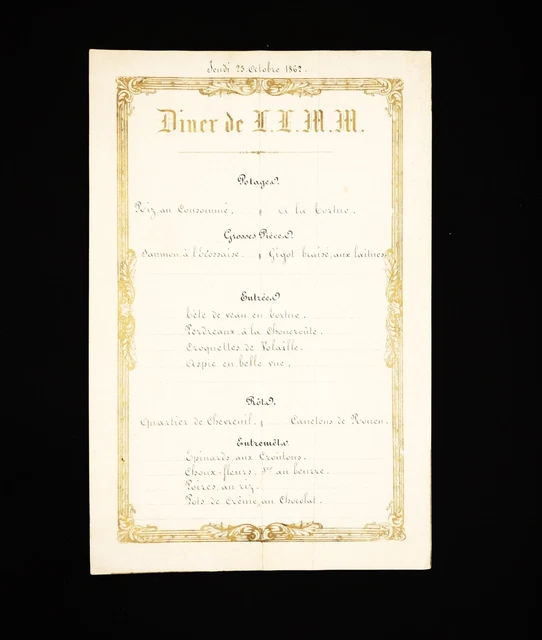 Jeudi 23 Octobre 1862.
Diner de L.L.M.M.
Potages.
Riz au Consommé. à la Tortue.
Grosses Pièces.
Saumon à l'Ecossaise. Gigot braisé, aux laitues
Entrées
Tête de veau en Tortue.
Perdreaux à la Choucroûte.
Croquettes de Volaille.
Aspic en belle vue.
Rôts.
Quartier de Chevreuil. Canetons de Rouen.
Entremêts.
Epinards, aux Croûtons.
Choux-fleurs, au beurre.
Poires, au riz.
Pots de Crême, au Chocolat.